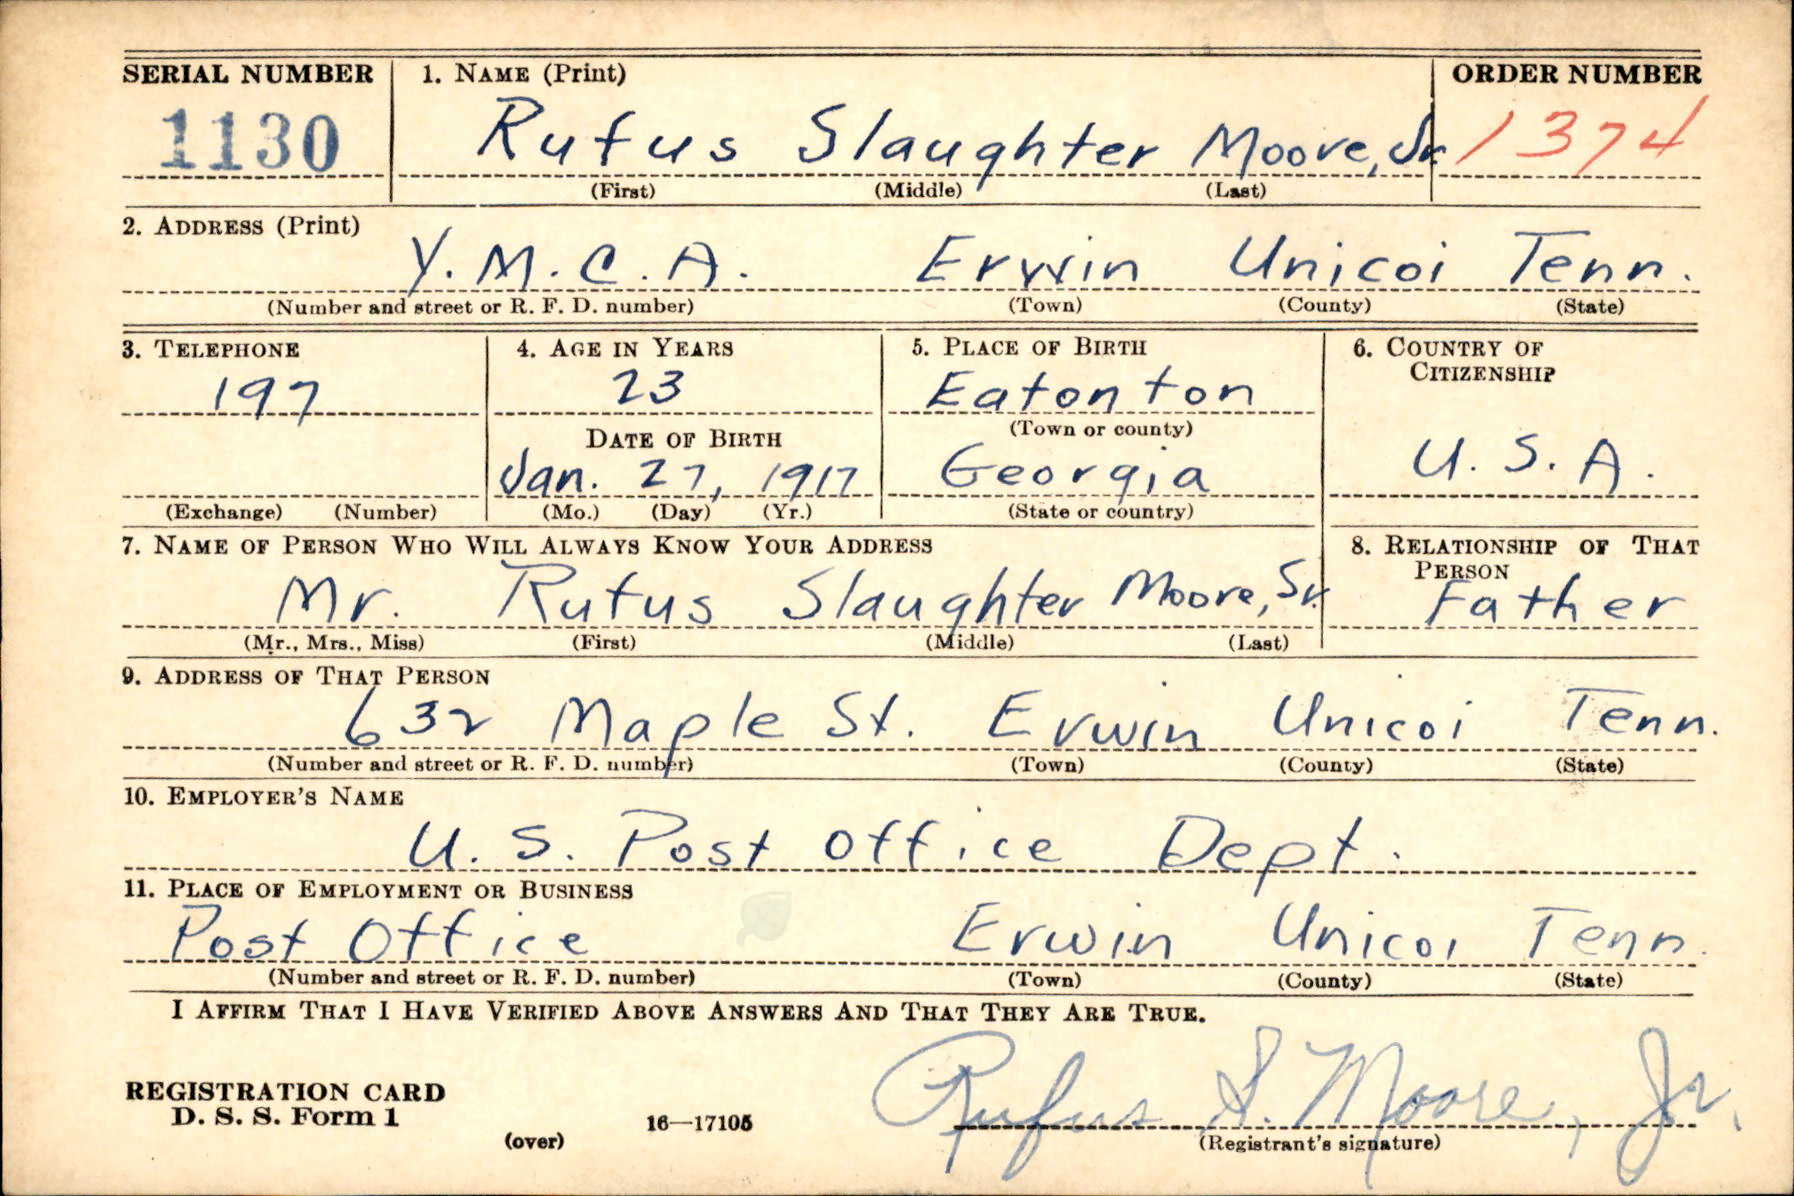 SERIAL NUMBER 1. NAME (Print) ORDER NUMBER
1130 Rufus Slaughter Moore, Jr. 1374
(First) (Middle) (Last)
2. ADDRESS (Print)
Y.M.C.A. Erwin Unicoi Tenn.
(Number and street or R. F. D. number) (Town) (County) (State)
3. TELEPHONE 4. AGE IN YEARS 5. PLACE OF BIRTH 6. COUNTRY OF
CITIZENSHIP
197 23 Eatonton
(Town or county)
DATE OF BIRTH
Jan. 27, 1917 Georgia U.S.A.
(Exchange) (Number) (Mo.) (Day) (Yr.) (State or country)
7. NAME OF PERSON WHO WILL ALWAYS KNOW YOUR ADDRESS 8. RELATIONSHIP OF THAT
PERSON
Mr. Rufus Slaughter Moore, Sr. Father
(Mr., Mrs., Miss) (First) (Middle) (Last)
9. ADDRESS OF THAT PERSON
632 Maple St. Erwin Unicoi Tenn.
(Number and street or R. F. D. number) (Town) (County) (State)
10. EMPLOYER'S NAME
U.S. Post Office Dept.
11. PLACE OF EMPLOYMENT OR BUSINESS
Post Office Erwin Unicoi Tenn.
(Number and street or R. F. D. number) (Town) (County) (State)
I AFFIRM THAT I HAVE VERIFIED ABOVE ANSWERS AND THAT THEY ARE TRUE.
REGISTRATION CARD
D. S. S. Form 1
(over) 16—17105
Rufus S. Moore, Jr.
(Registrant's signature)